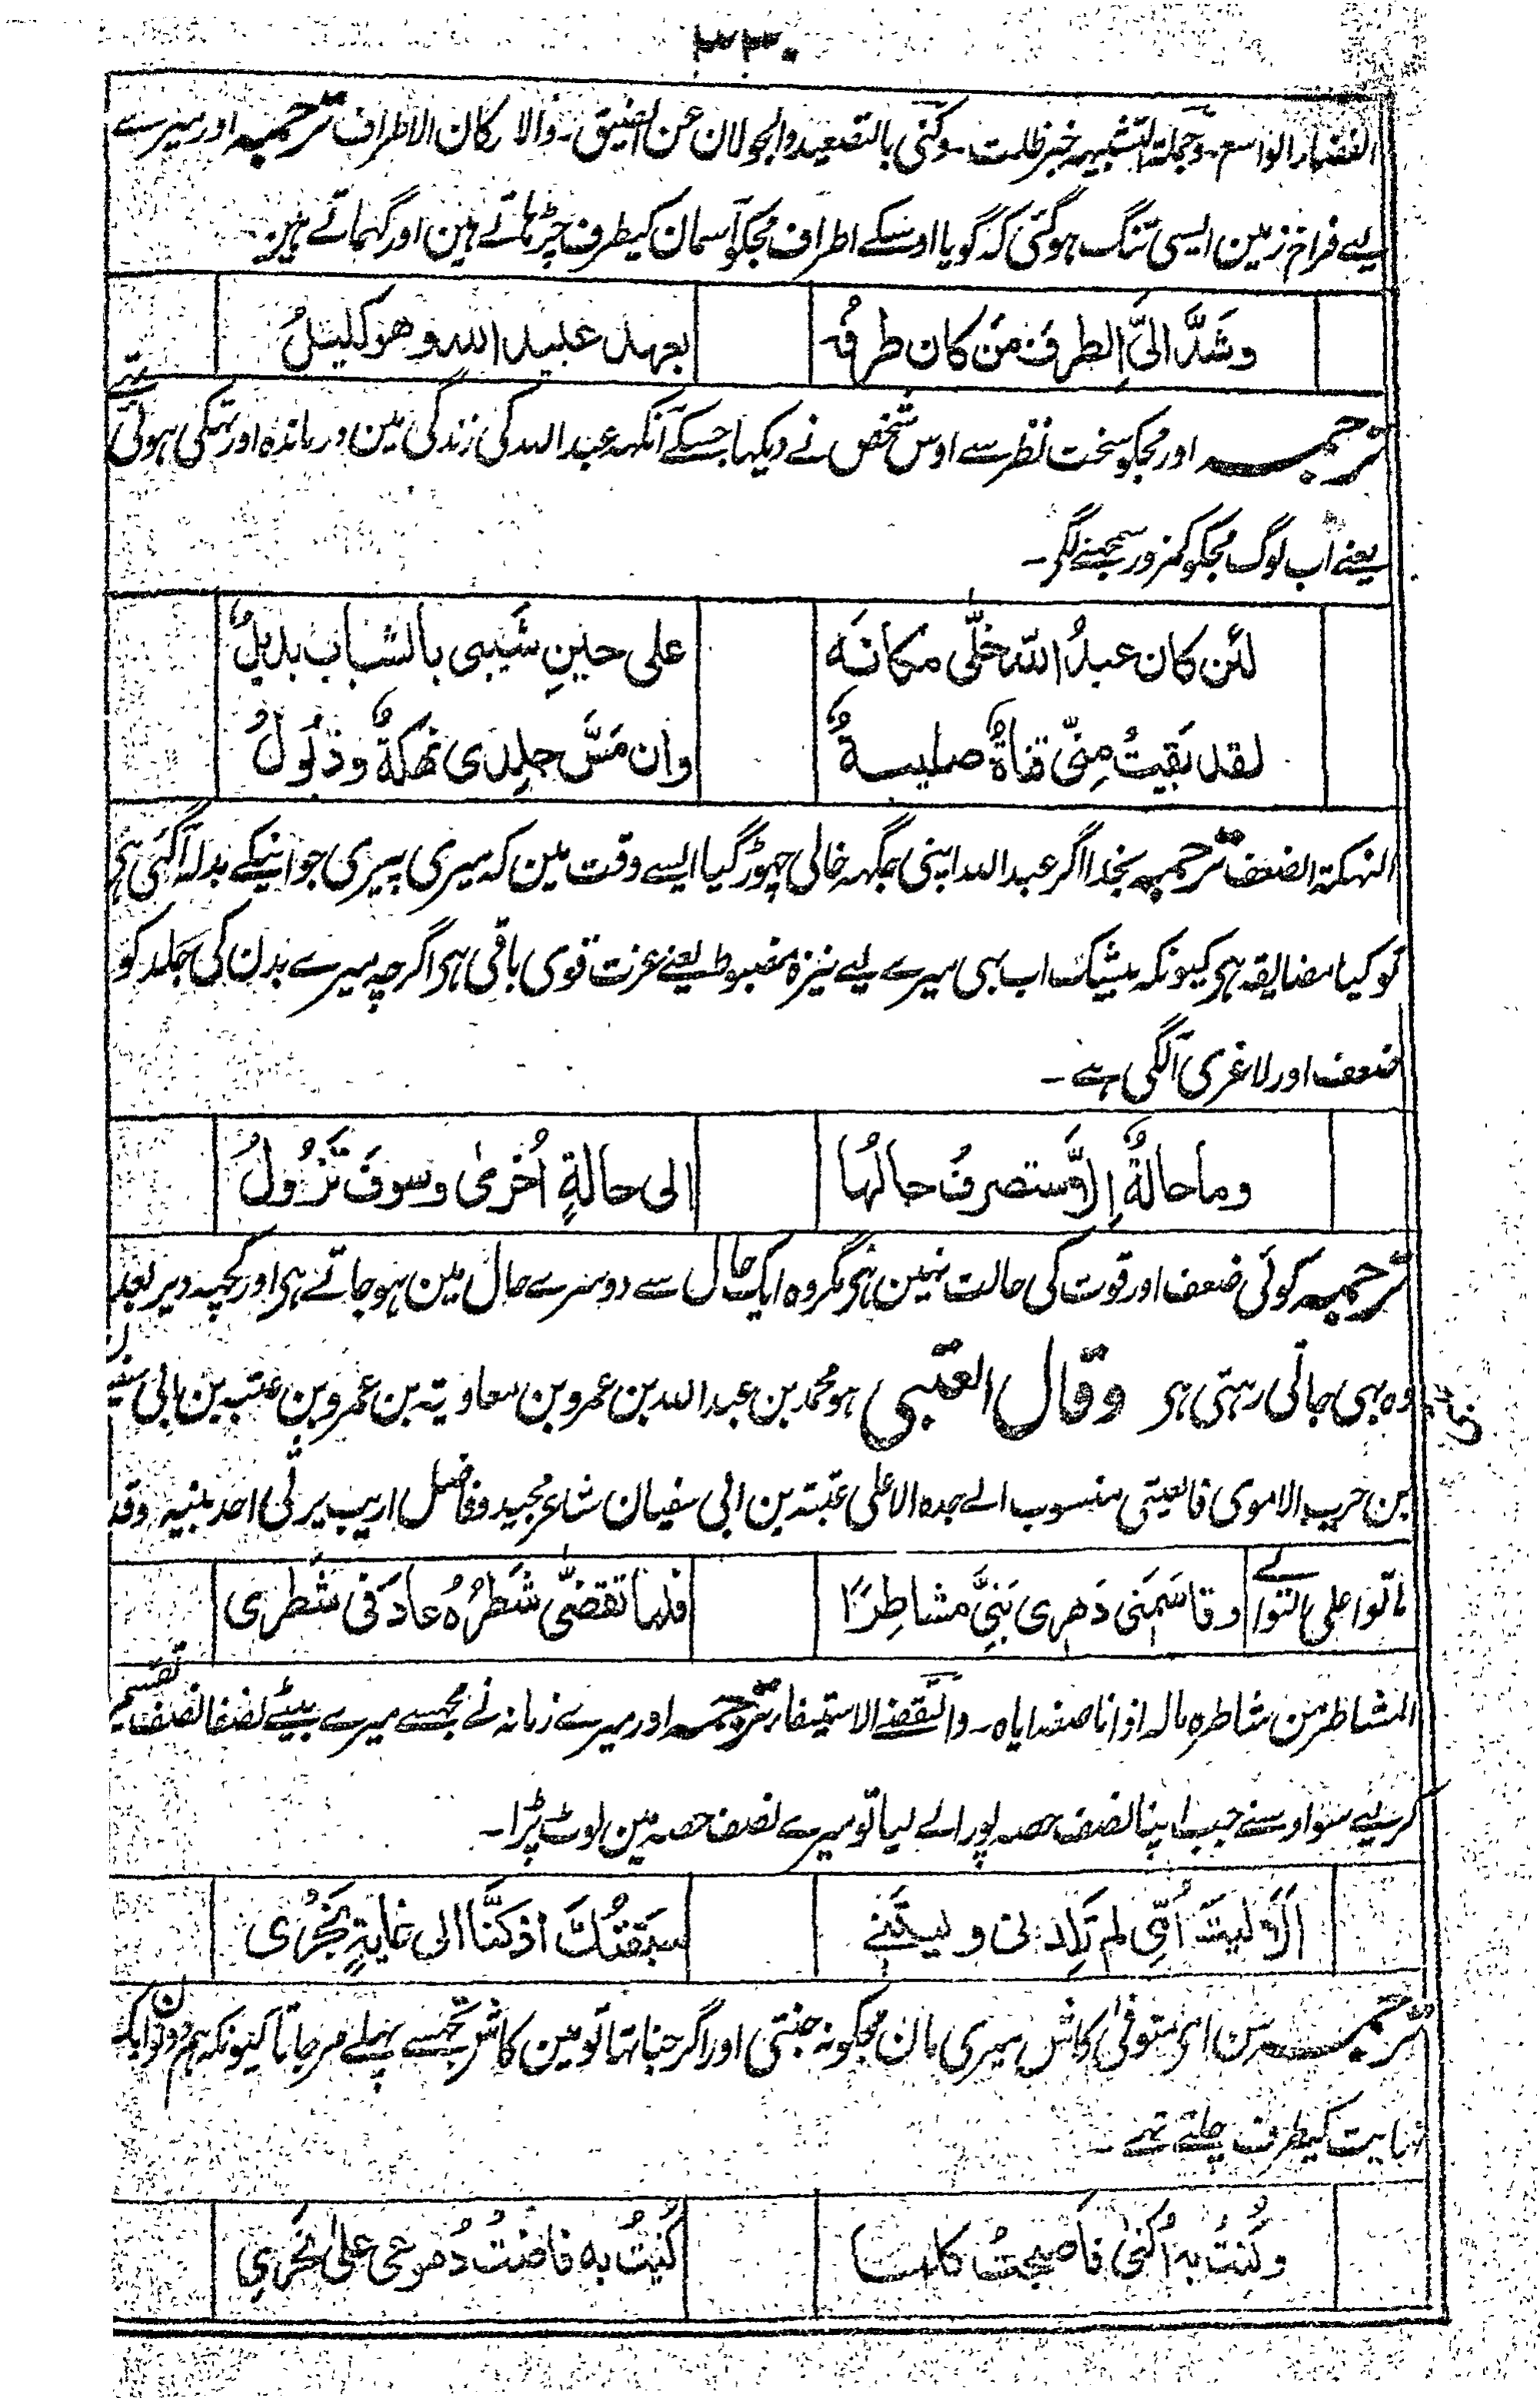 ٣٣٠
الفضاء الواسع۔ وجملة التشبيہ خبر ظلت۔ وکنی بالتصعید والجولان عن الضیق۔ والارکان الاطراف ترجمہ اور میرے
لیے فراخ زمین ایسی تنگ ہوگئی کہ گویا اوسکے اطراف مجکو آسمان کیطرف چڑہاتے ہین اور گہماتے ہین۔
وشَدَّ الیَّ الطرفَ مَن کان طرفُہ بعہد عبید اللہ وھو کلیلُ
ترجمہ اور مجکو سخت نظر سے اوس شخص نے دیکہا جسکے آنکہہ عبد اللہ کی زندگی مین درماندہ اور تہکی ہوئی تہے
یعنے اب لوگ مجکو کمزور سمجہنے لگے۔
لئن کان عبدُ اللہ خلّی مکانَہ علی حینِ شَیبی بالشباب بدیلُ
لقد بَقِیَتْ مِنّی قناةٌ صلیبةٌ وان مَسَّ جِلدی نھکةٌ وذُلُولُ
النہکة الضعف ترجمہ بخدا اگر عبد اللہ اپنی جگہہ خالی چہوڑ گیا ایسے وقت مین کہ میری پیری جوانیکے بدلہ آگئی ہی
تو کیا مضایقہ ہی کیونکہ بیشک اب بہی میرے لیے نیزہ مضبوط یعنے عزت قوی باقی ہی اگرچہ میرے بدن کی جلد کو
ضعف اور لاغری آلگی ہے۔
وما حالةٌ اِلّا ستصرفُ حالُہا الی حالةٍ اُخریٰ وسوفَ تَزُولُ
ترجمہ کوئی ضعف اور قوت کی حالت نہین ہی مگر وہ ایک حال سے دوسرے حال مین ہو جاتے ہی اور کچہہ دیر بعد
وہ بہی جاتی رہتی ہی وقال العتبی ہو محمد بن عبد اللہ بن عمرو بن معاویة بن عمرو بن عتبہ بن ابی سفیان
بن حرب الاموی فالعتبی منسوب الے جدہ الاعلی عتبة بن ابی سفیان شاعر مجید وفاضل ادیب یرثی احد بنیہ وقد
ماتوا علی التوالے وقاسَمَنی دَھری بَنِیَّ مشاطِرًا فلما تقضّی شَطرُہُ عادَ فی شَطری
المشاطر من شاطرہ مالہ اذا ناصفہ ایاہ۔ والتقضے الاستیفاء ترجمہ اور میرے زمانہ نے مجہسے میرے بیٹے نصفا نصف تقسیم
کرلیے سو اوسنے جب اپنا نصف حصہ پورا لے لیا تو میرے نصف حصہ مین لوٹ پڑا۔
اَلا لیتَ اُمّی لم تَلِدنی ولیتَنے سبقتُكَ اذ کنّا الی غایةٍ نَجْرِی
ترجمہ سن ای متوفی کاش میری مان مجکو نہ جنتی اور اگر جنا تہا تو مین کاش تجہسے پہلے مر جاتا کیونکہ ہم دونون ایک
نہایت کیطرف چلتے تہے۔
وکُنتُ بہ اُکنیٰ فاصبحتُ کلما کُنِیتُ بہ فاضتْ دُموعی علی نَحْرِی